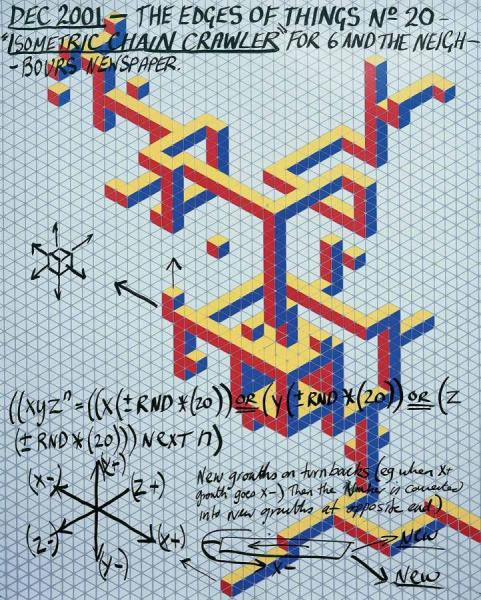 DEC 2001 - THE EDGES OF THINGS Nº 20 -
"ISOMETRIC CHAIN CRAWLER" FOR 6 AND THE NEIGH-
-BOURS NEWSPAPER.
((xyzⁿ = ((X(± RND *(20)) OR (Y(± RND *(20)) OR (Z
(± RND *(20))) NEXT n)
New growths on turnbacks (eg when X+
growth goes X-) Then the Number is converted
into New growths at opposite end)
(X-)
(Y+)
(Z+)
(Z-)
(X+)
(Y-)
X-
New
New